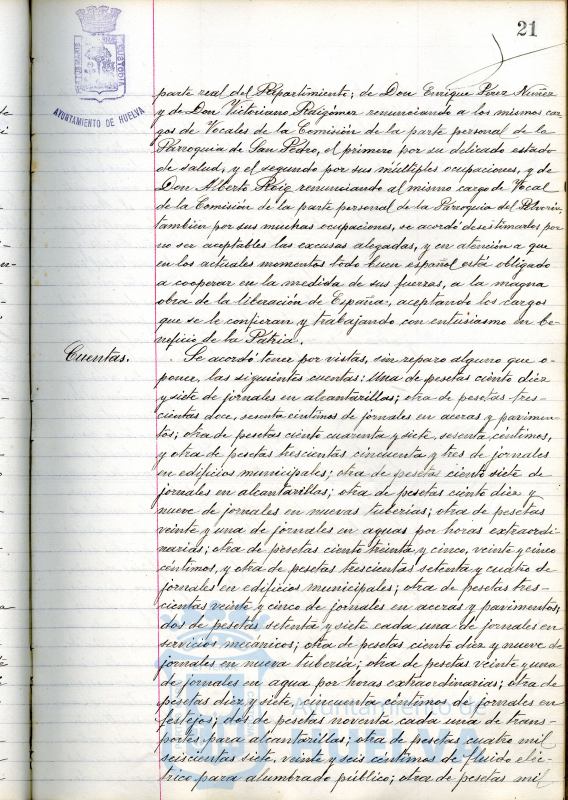 21
AYUNTAMIENTO DE HUELVA
parte real del Repartimiento; de Don Enrique Pérez Núñez
y de Don Victoriano Raigómez renunciando a los mismos car
gos de Vocales de la Comisión de la parte personal de la
Parroquia de San Pedro, el primero por su delicado estado
de salud, y el segundo por sus múltiples ocupaciones, y de
Don Alberto Roig renunciando al mismo cargo de Vocal
de la Comisión de la parte personal de la Parroquia del Polvorín,
también por sus muchas ocupaciones, se acordó desestimarlas por
no ser aceptables las excusas alegadas, y en atención a que
en los actuales momentos todo buen español está obligado
a cooperar en la medida de sus fuerzas, a la magna
obra de la liberación de España, aceptando los cargos
que se le confieran y trabajando con entusiasmo en be-
neficio de la Patria.
Cuentas.
Se acordó tener por vistas, sin reparo alguno que o-
poner, las siguientes cuentas: Una de pesetas ciento diez
y siete de jornales en alcantarillas; otra de pesetas tres-
cientas doce, sesenta céntimos de jornales en aceras y pavimen-
tos; otra de pesetas ciento cuarenta y siete, sesenta céntimos,
y otra de pesetas trescientas cincuenta y tres de jornales
en edificios municipales; otra de pesetas ciento siete de
jornales en alcantarillas; otra de pesetas ciento diez y
nueve de jornales en nuevas tuberías; otra de pesetas
veinte y una de jornales en aguas por horas extraordi-
narias; otra de pesetas ciento treinta y cinco, veinte y cinco
céntimos, y otra de pesetas trescientas setenta y cuatro de
jornales en edificios municipales; otra de pesetas tres-
cientas veinte y cinco de jornales en aceras y pavimentos;
dos de pesetas setenta y siete cada una de jornales en
servicios mecánicos; otra de pesetas ciento diez y nueve de
jornales en nueva tubería; otra de pesetas veinte y una
de jornales en agua por horas extraordinarias; otra de
pesetas diez y siete, cincuenta céntimos de jornales en
festejos; dos de pesetas noventa cada una de trans-
portes para alcantarillas; otra de pesetas cuatro mil
seiscientas siete, veinte y seis céntimos de fluido eléc-
trico para alumbrado público; otra de pesetas mil
Ayuntamiento de
HUELVA